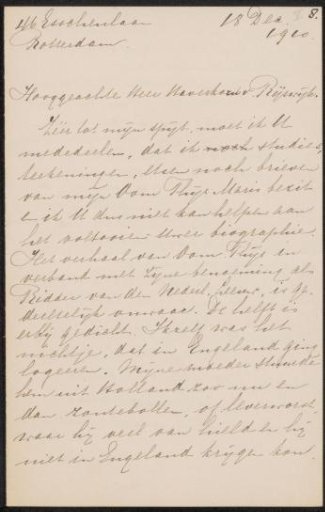 46 Esschenlaan 18 Dec.
Rotterdam. 1910.
Hooggeachte Heer Haverkorn v. Rijswijk.
Zéér tot mijn spijt, moet ik U
mededeelen, dat ik noch studies,
teekeningen, etsen noch brieven
van mijn Oom Thijs Maris bezit
& ik U dus niet kan helpen aan
het voltooien Uwer biographie.
Het verhaal van Oom Thijs in
verband met zijne benoeming als
Ridder van den Nederl. Leeuw, is ge-
deeltelijk onwaar. De helft is
erbij gedicht. Ikzelf was het
nichtje, dat in Engeland ging
logeeren. Mijne moeder stuurde
hem uit Holland zoo nu en
dan zoutebollen, of leverworst,
waar hij veel van hield en hij
niet in Engeland krijgen kon.